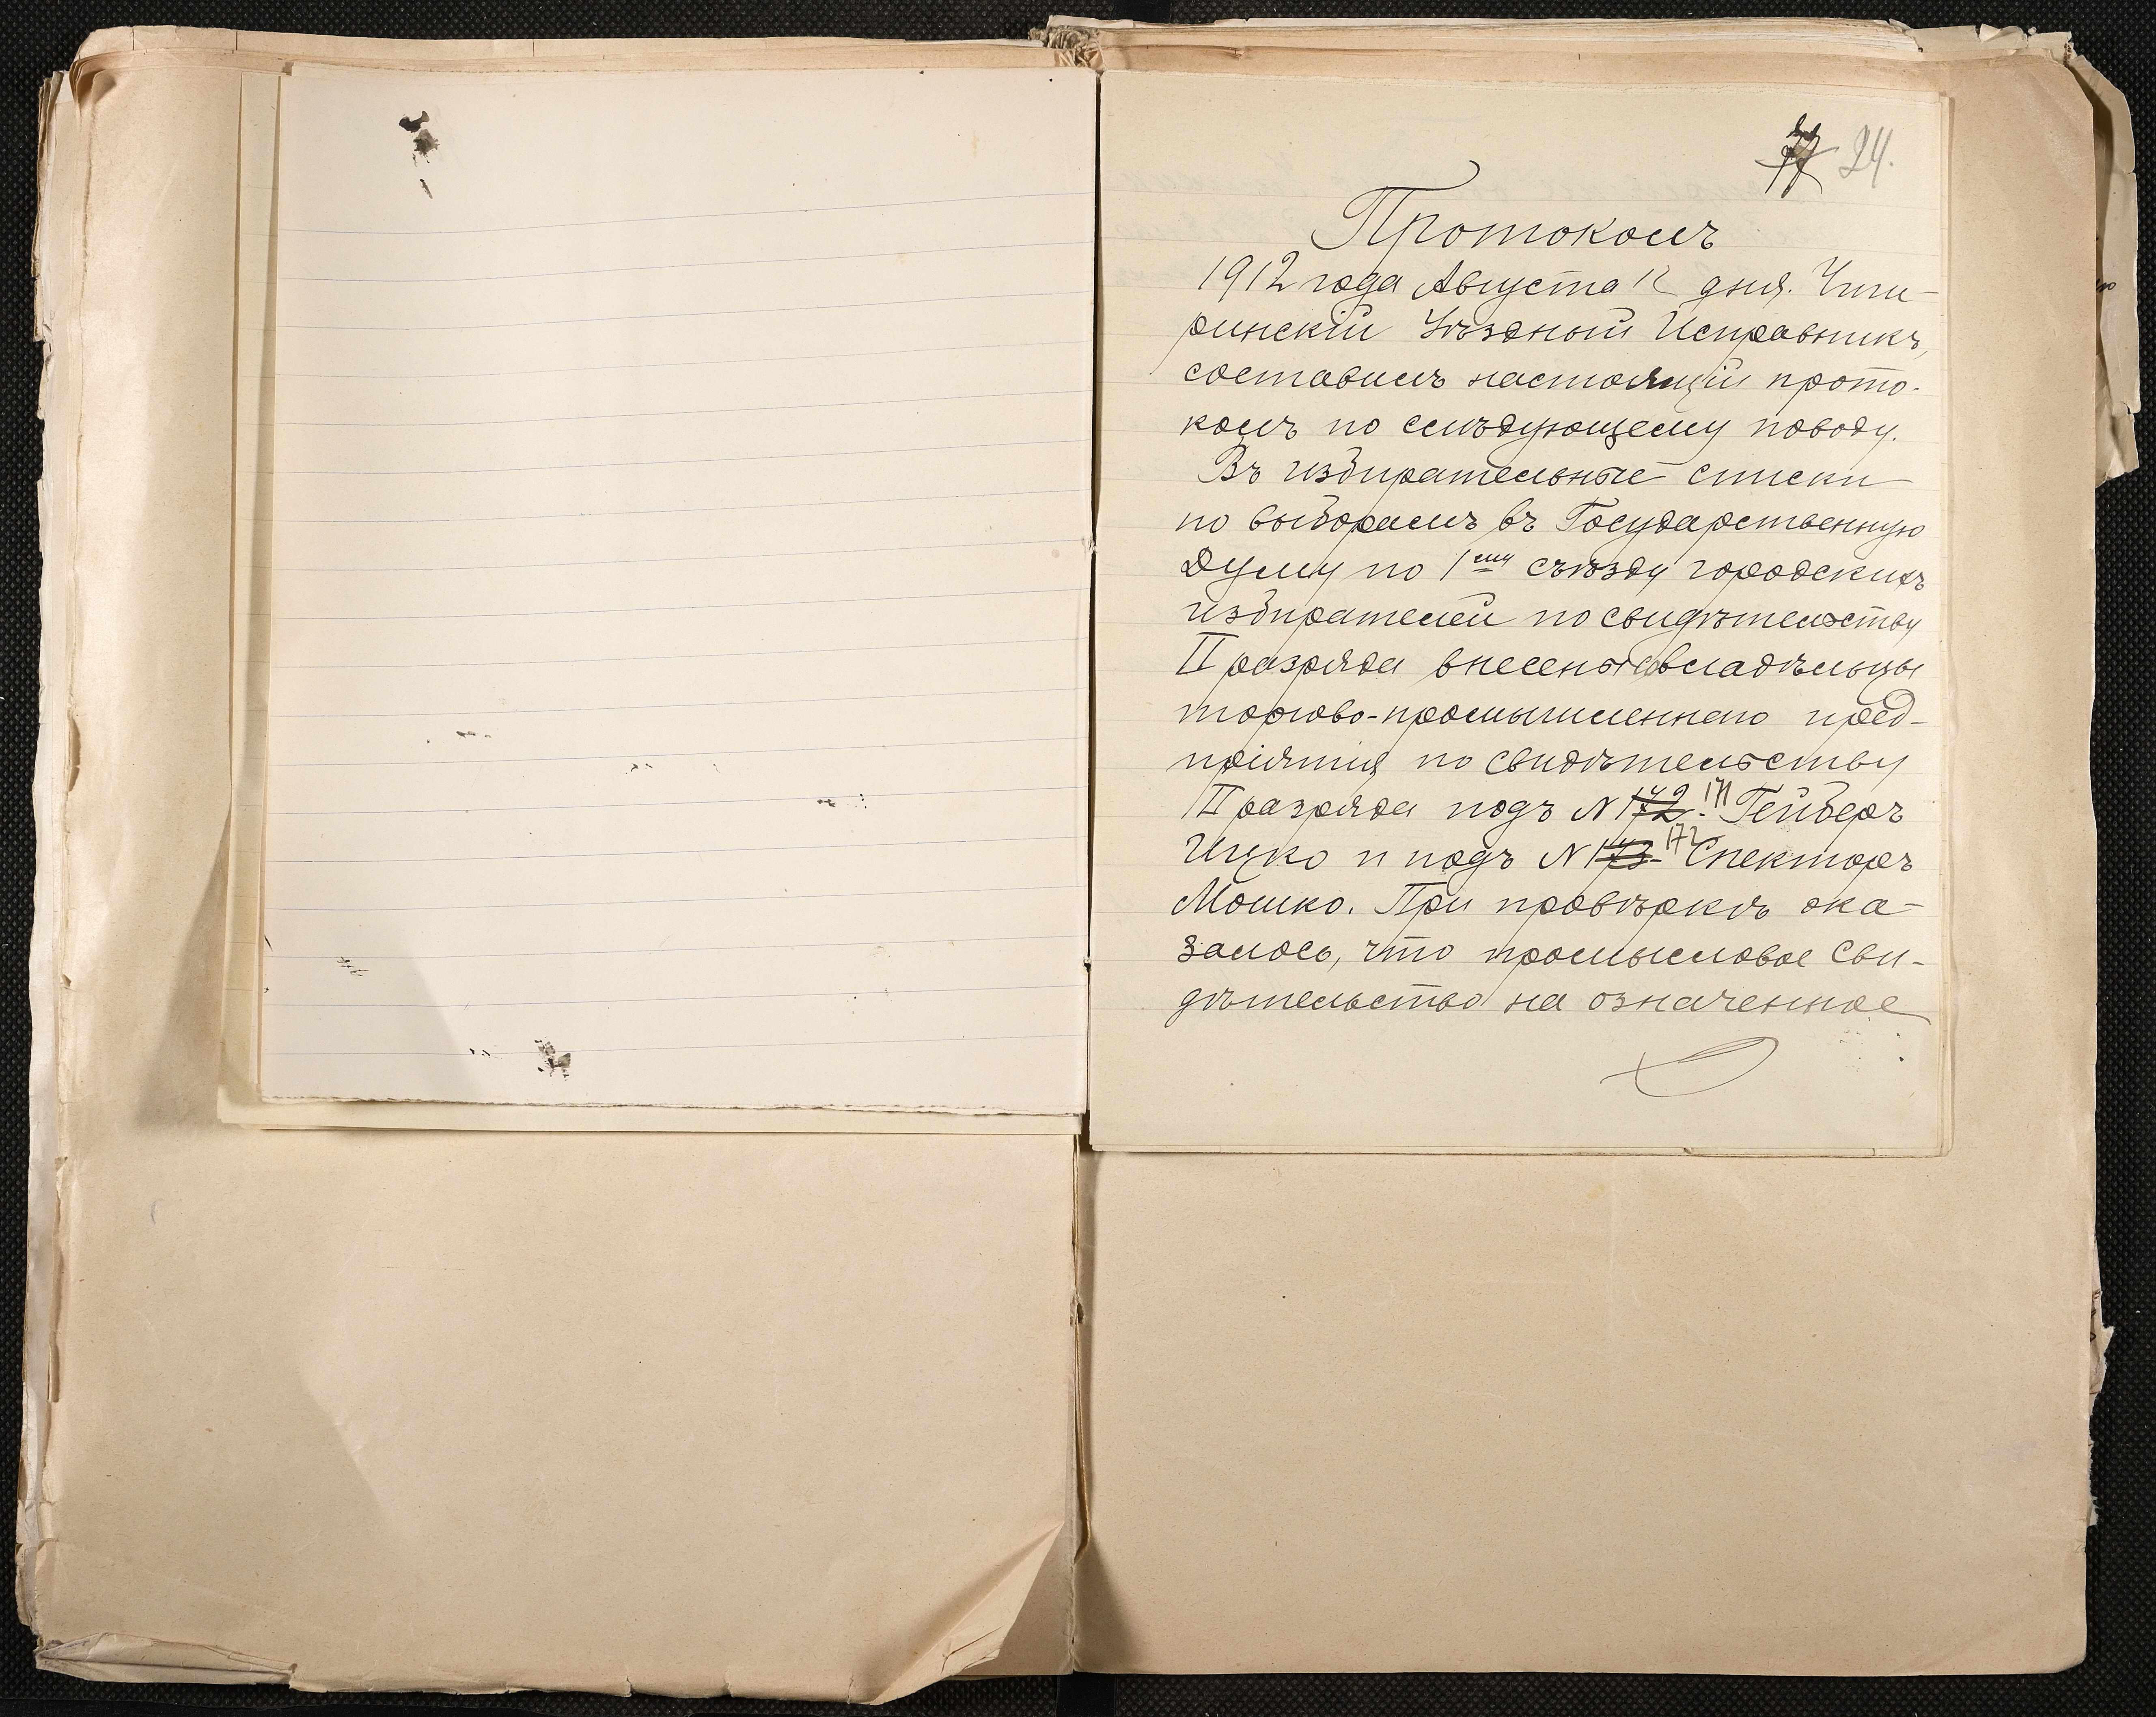 24.
Протоколъ
1912 года Августа 12 дня. Чиги-
ринскій Уѣздный Исправникъ,
составилъ настоящій прото-
колъ по слѣдующему поводу.
Въ избирательные списки
по выборамъ въ Государственную
Думу по 1ому съѣзду городскихъ
избирателей по свидѣтельству
II разряда внесены совладѣльцы
торгово-промышленнаго пред-
пріятія по свидѣтельству
II разряда подъ N 172. 171 Гейберъ
Ицко и подъ N 173 172 Спекторъ
Мошко. При провѣркѣ ока-
залось, что промысловое сви-
дѣтельство на означенное